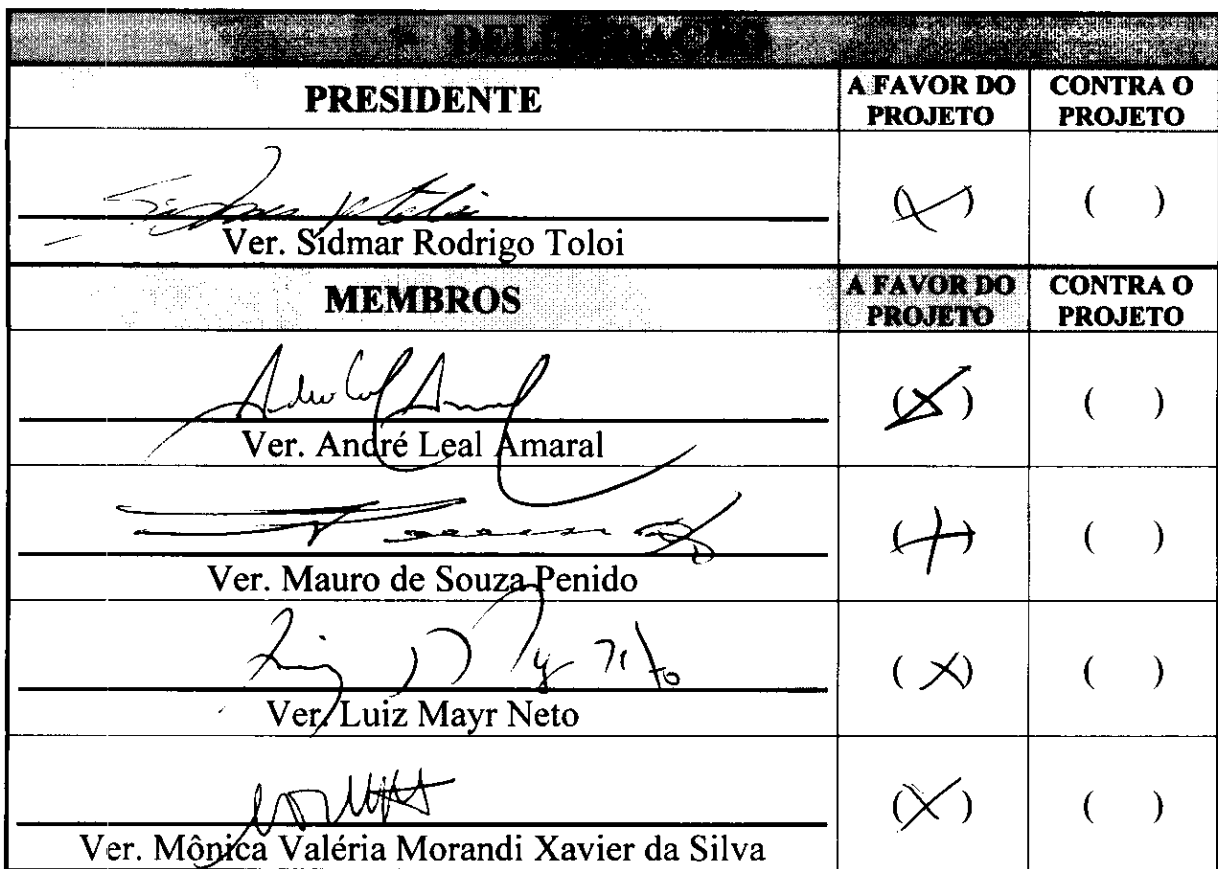 DELIBERAÇÃO
PRESIDENTE
A FAVOR DO PROJETO
CONTRA O PROJETO
( X )
( )
Ver. Sidmar Rodrigo Toloi
MEMBROS
A FAVOR DO PROJETO
CONTRA O PROJETO
( X )
( )
Ver. André Leal Amaral
( X )
( )
Ver. Mauro de Souza Penido
( X )
( )
Ver. Luiz Mayr Neto
( X )
( )
Ver. Mônica Valéria Morandi Xavier da Silva